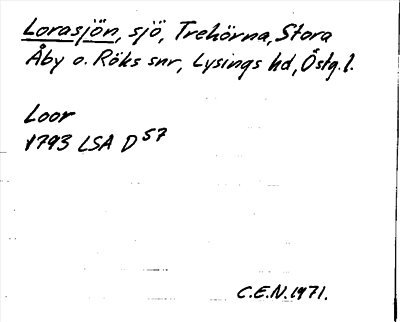 Lorasjön, sjö, Trehörna, Stora
Åby o. Röks snr, Lysings hd, Östg. l.
Loor
1793 LSA D 57
C.E.N. 1971.